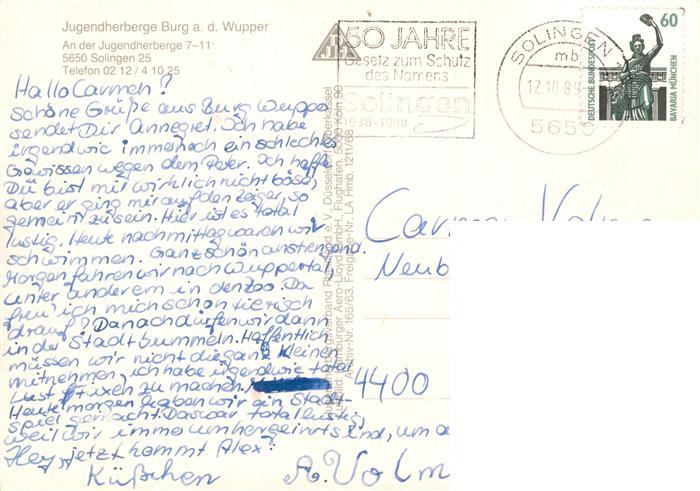 Jugendherberge Burg a. d. Wupper
An der Jugendherberge 7–11
5650 Solingen 25
Telefon 02 12 / 4 10 25
Hallo Carmen!
Schöne Grüße aus Burg Wupper
sendet Dir Annegret. Ich habe
irgendwie immernoch ein schlechtes
Gewissen wegen dem Peter. Ich hoffe
Du bist mir wirklich nicht böse,
aber er ging mir auf den Zeiger, so
gemein zu sein. Hier ist es total
lustig. Heute nachmittag waren wir
schwimmen. Ganz schön anstrengend.
Morgen fahren wir nach Wuppertal,
unter anderem in den Zoo. Da
freu' ich mich schon tierisch
drauf! Danach dürfen wir dann
in der Stadt bummeln. Hoffentlich
müssen wir nicht die ganz Kleinen
mitnehmen, ich habe irgendwie total
Lust Faxen zu machen.
Heute morgen haben wir ein Stadt-
spiel gemacht. Das war total lustig,
weil wir immer umhergeirrt sind, um
Hey, jetzt kommt Alex!
Küßchen A. Volm
50 JAHRE
Gesetz zum Schutz
des Namens
Solingen
1938-1988
SOLINGEN
mb
12.10.8
5650
60
DEUTSCHE BUNDESPOST
BAVARIA MÜNCHEN
Carmen
Neub
4400